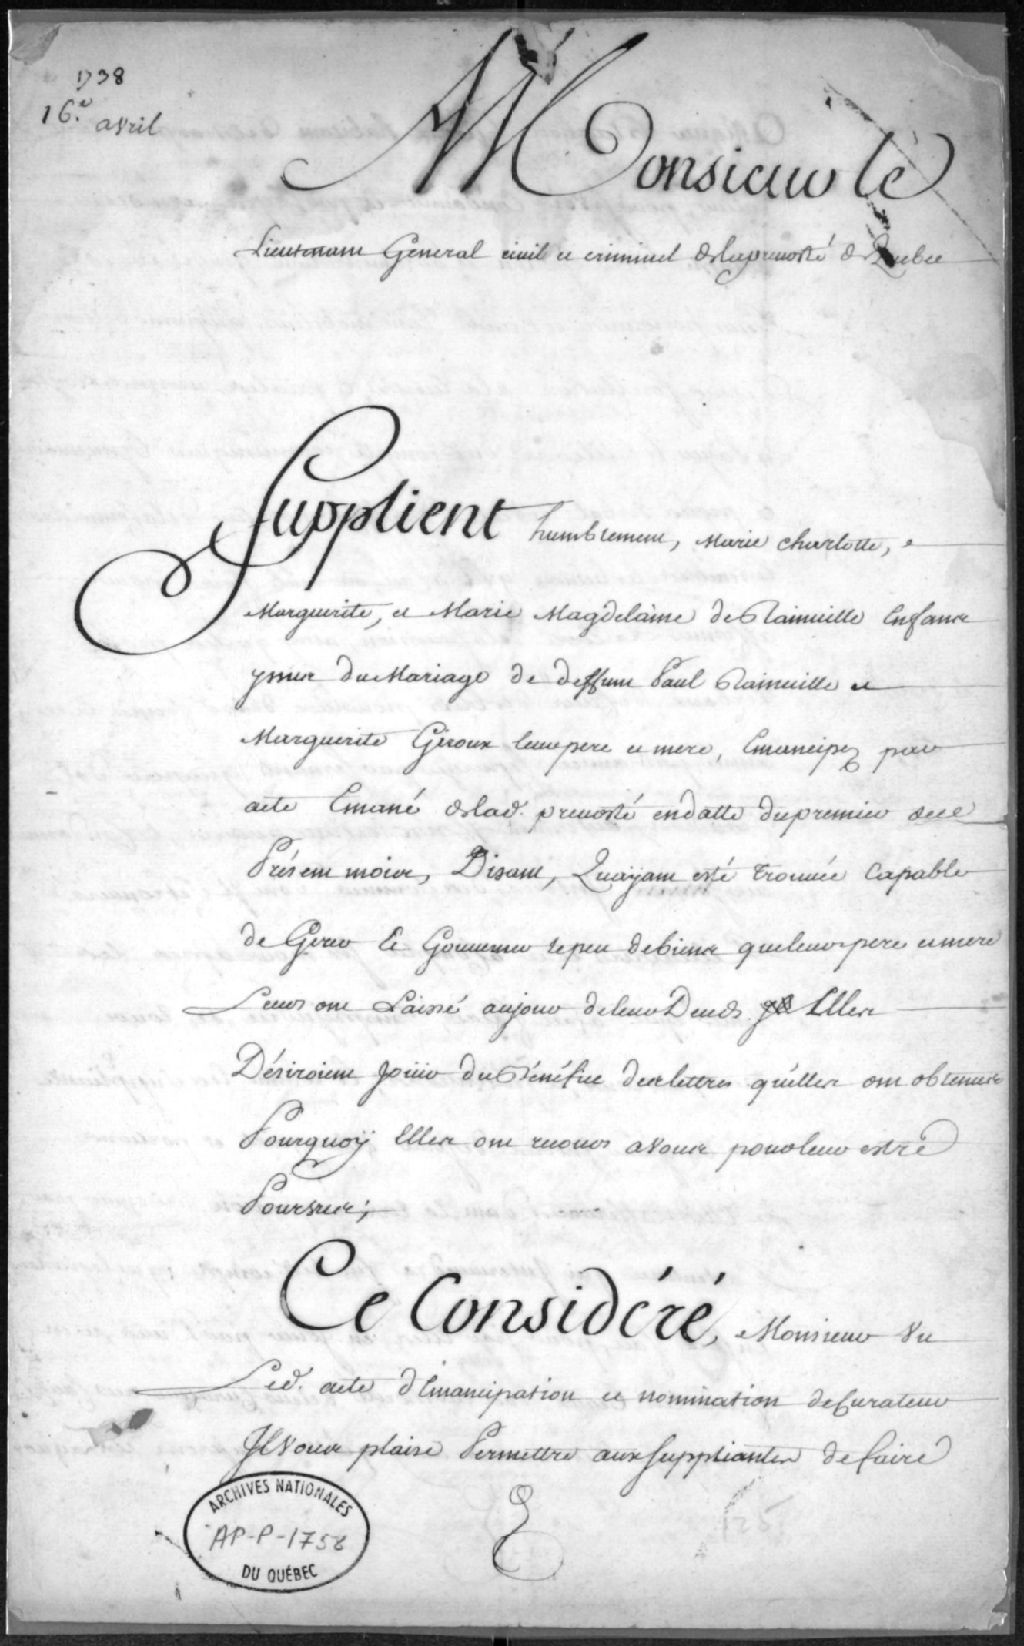 1738
16.e avril
Monsieur le
Lieutenant General civil et criminel de la prevosté de Quebec
Supplient humblement, Marie Charlotte,
Marguerite, et Marie Magdelaine de Rainville Enfans
yssues du Mariage de deffunt Paul Rainville et
Marguerite Giroux leur pere et mere, Emancipez par
acte Emané de lad. prevosté en datte du premier de ce
Présent mois, Disant, Quayant esté trouvée Capable
de Gerer Et Gouverner le peu de biens que leurs pere et mere
Leurs ont Laissé au jour de leur Deceds Elles
Désiroient joüir du Bénéfice des lettres qu'elles ont obtenues
Pourquoÿ Elles ont recours a vous pour leur estre
Pourvue;
Ce Considéré, Monsieur Vu
Led. acte d'Emancipation et nomination de Curateur
Il Vous plaise Permettre aux suppliantes de faire
ARCHIVES NATIONALES
AP-P-1758
DU QUÉBEC